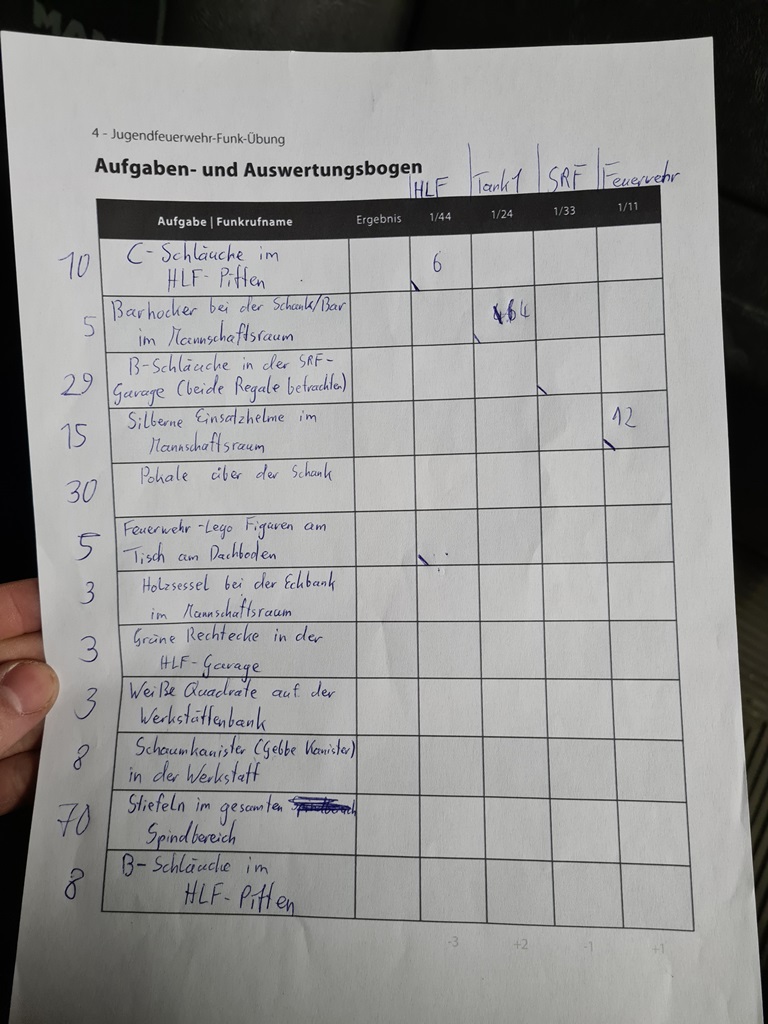 4 - Jugendfeuerwehr-Funk-Übung
Aufgaben- und Auswertungsbogen
HLF Tank1 SRF Feuerwehr
Aufgabe | Funkrufname Ergebnis 1/44 1/24 1/33 1/11
10 C-Schläuche im
HLF-Pitten 6
5 Barhocker bei der Schank/Bar
im Mannschaftsraum 4
29 B-Schläuche in der SRF-
Garage (beide Regale betrachten)
15 Silberne Einsatzhelme im
Mannschaftsraum 12
30 Pokale über der Schank
5 Feuerwehr-Lego Figuren am
Tisch am Dachboden
3 Holzsessel bei der Eckbank
im Mannschaftsraum
3 Grüne Rechtecke in der
HLF-Garage
3 Weiße Quadrate auf der
Werkstättenbank
8 Schaumkanister (Gelbe Kanister)
in der Werkstatt
70 Stiefeln im gesamten
Spindbereich
8 B-Schläuche im
HLF-Pitten
-3 +2 -1 +1